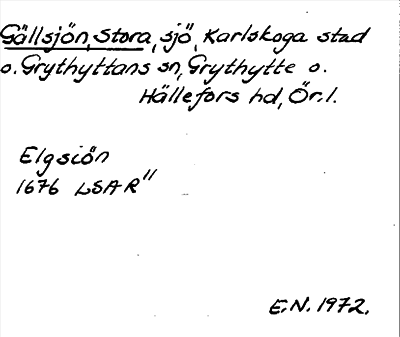 Gällsjön, Stora, sjö, Karlskoga stad
o. Grythyttans sn, Grythytte o.
Hällefors hd, Ör. l.
Elgsiön
1676 LSAR"
E.N. 1972.